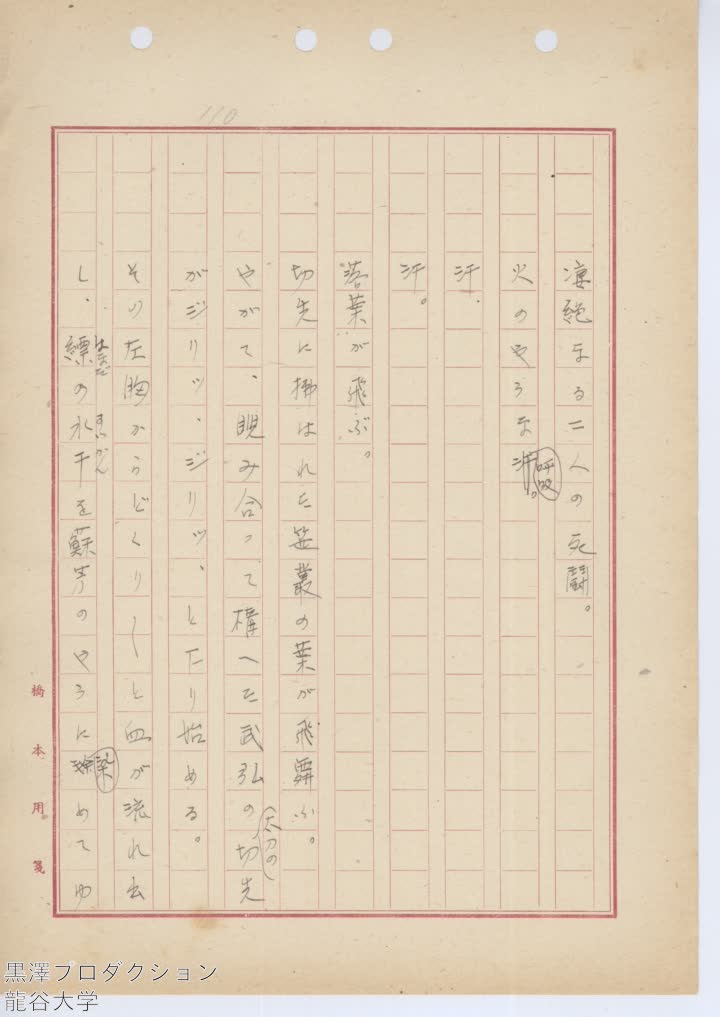 110
凄絶なる二人の死闘。
火のやうな呼吸。
汗、
汗。
落葉が飛ぶ。
切先に拂はれた笹叢の葉が飛舞ふ。
やがて、睨み合って構へた武弘の(太刀の)切先
がジリッ、ジリッ、と下り始める。
そり左胸からどくり〱と血が流れ出
し、縹の水干を蘇芳のやうに染めてゆ
はなだ
すいかん
橋本用箋
黒澤プロダクション
龍谷大学